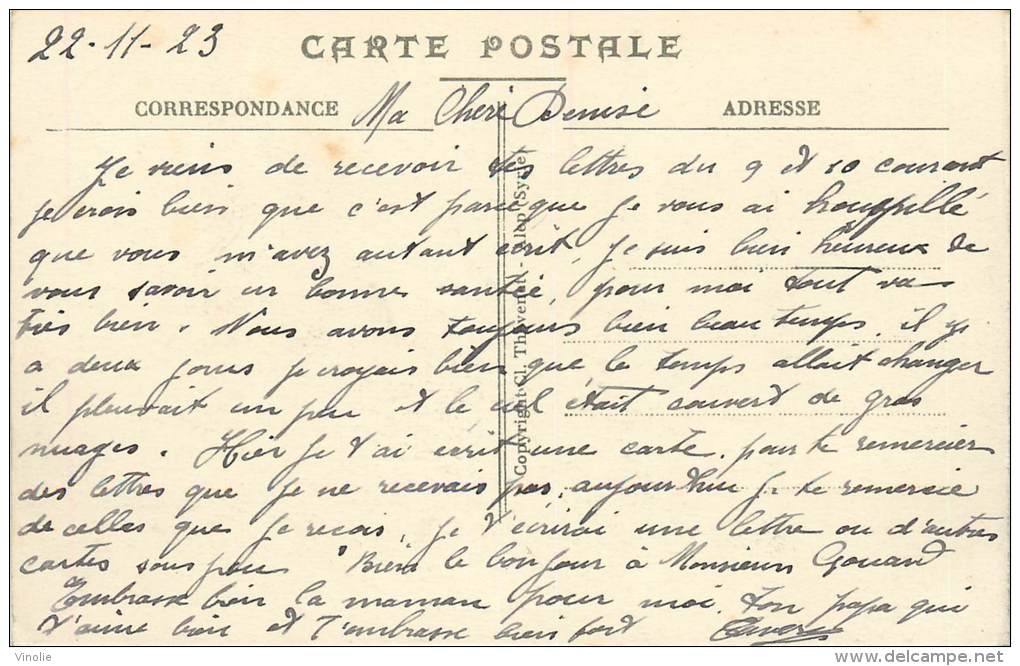 22-11-23
CARTE POSTALE
CORRESPONDANCE
ADRESSE
Ma Cheri Denise
Je viens de recevoir tes lettres du 9 et 10 courant
je crois bien que c'est parce que je vous ai houspillé
que vous m'avez autant ecrit, je suis bien heureux de
vous savoir en bonne santée, pour moi tout va
très bien. Nous avons toujours bien beau temps. il y
a deux jours je croyais bien que le temps allait changer
il pleuvait un peu et le ciel était couvert de gros
nuages. Hier je t'ai ecrit une carte pour te remercier
des lettres que je ne recevais pas, aujourd'hui je te remercie
de celles que je recois, je t'écrirai une lettre ou d'autres
cartes sous peu Bien le bonjour à Monsieur Gouard
Embrasse bien la maman pour moi. ton papa qui
t'aime bien et t'embrasse bien fort
Copyright Cl. Thévenet - Alep (Syrie)
Vinolie